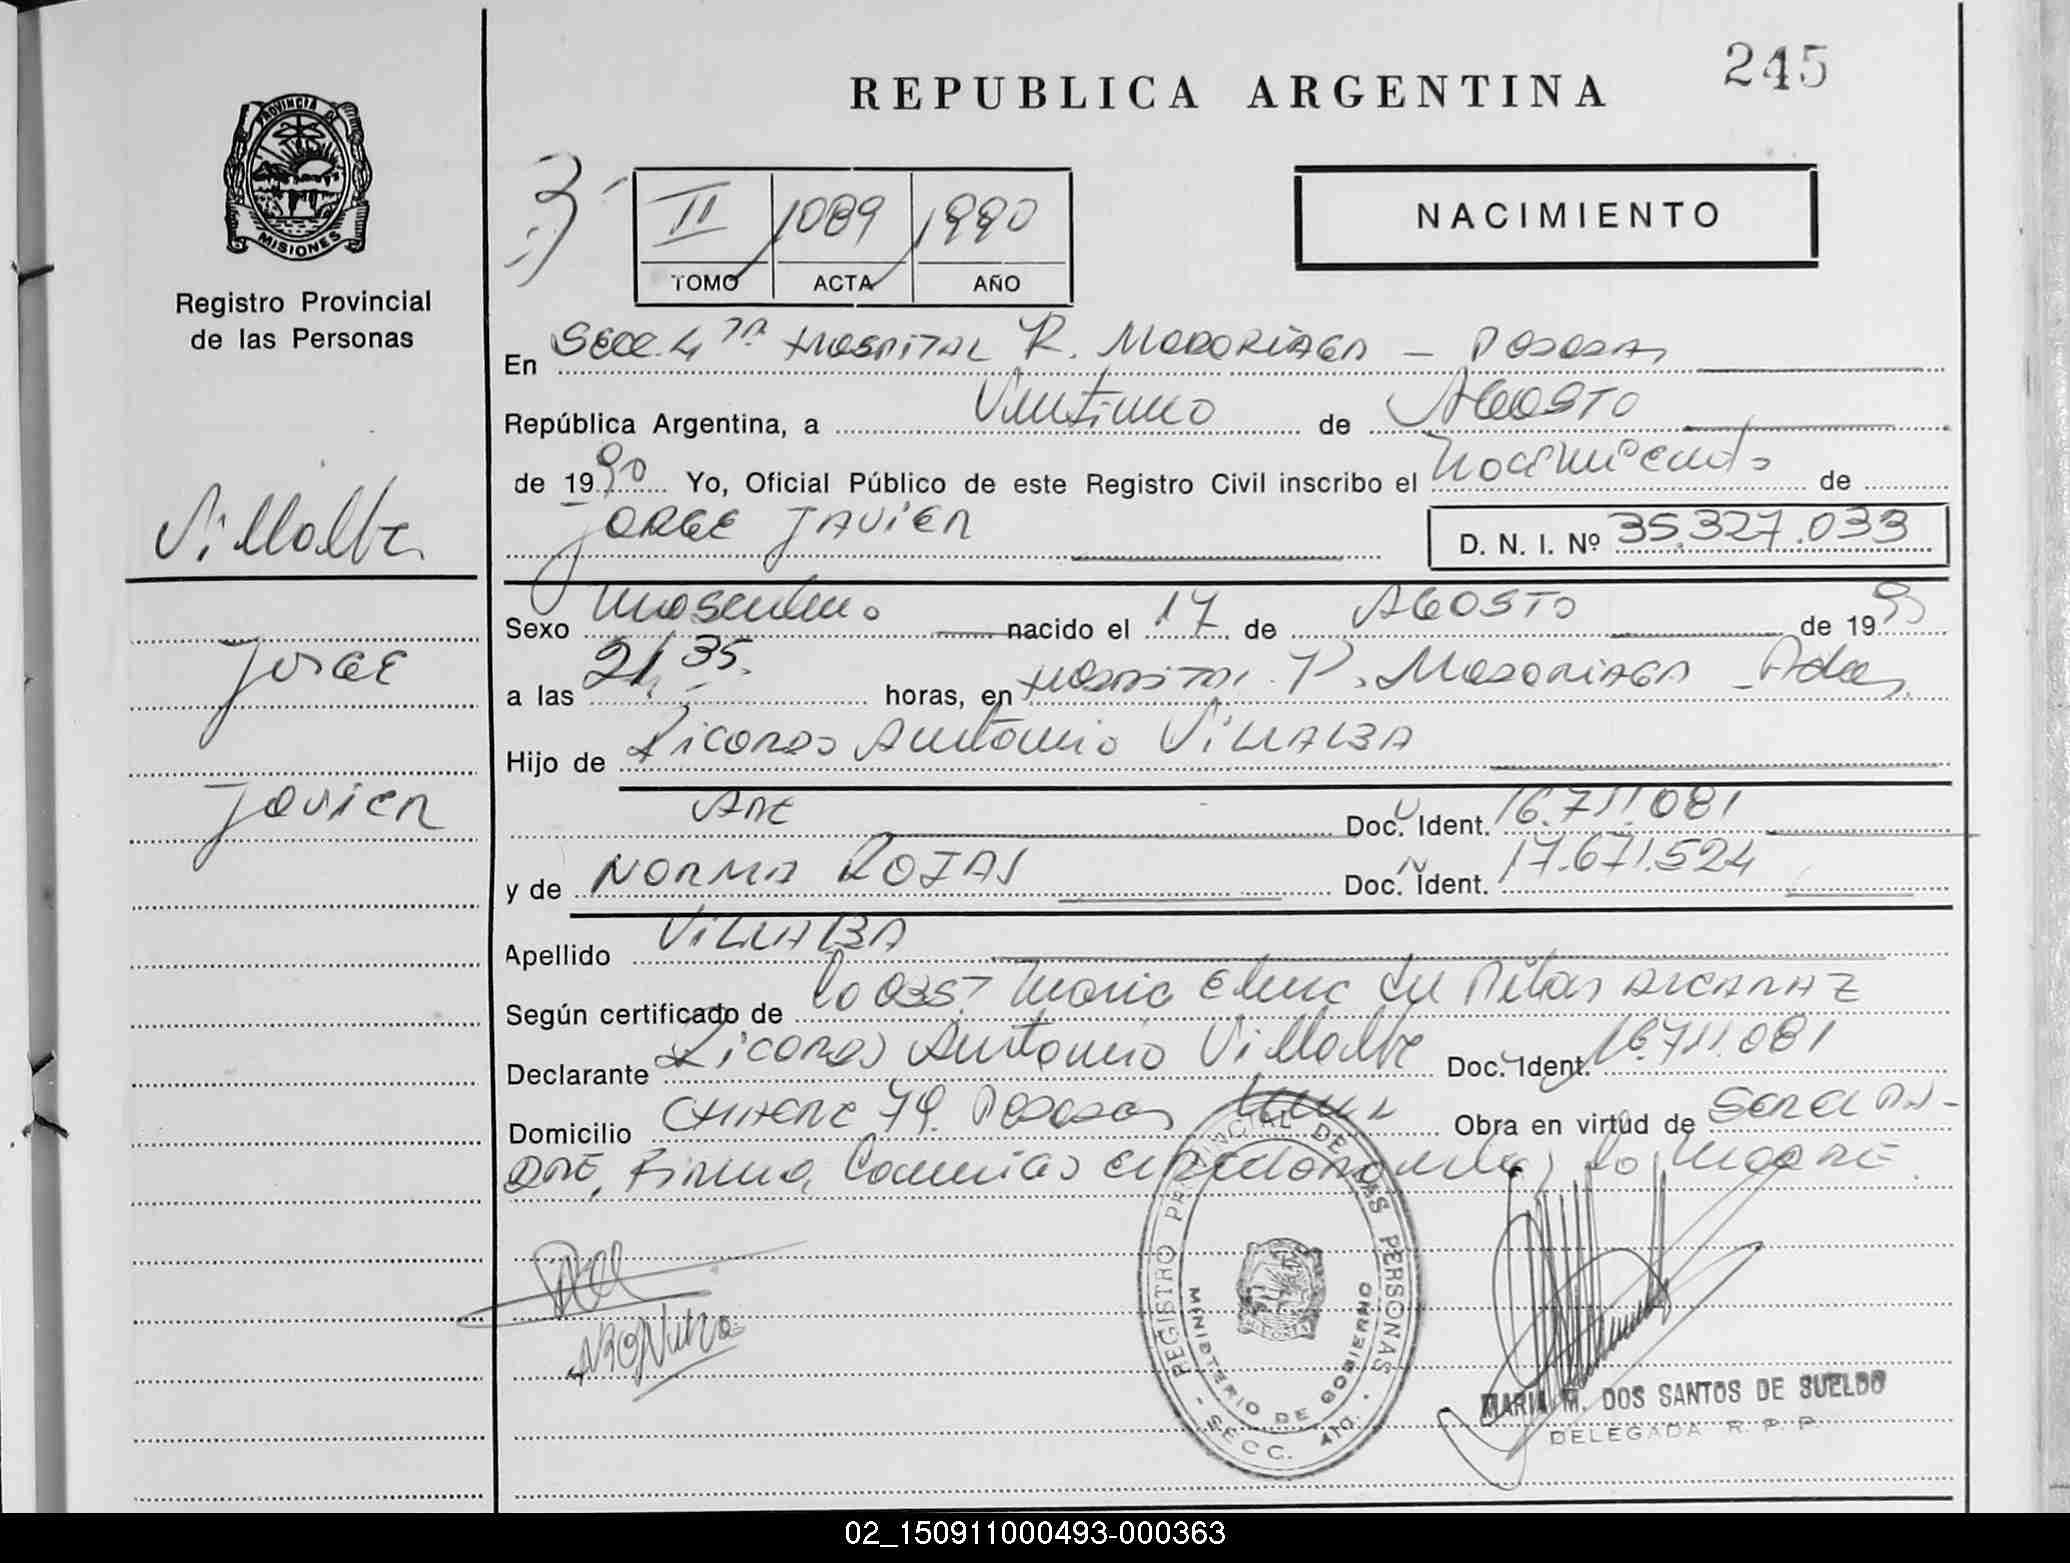 245
REPUBLICA ARGENTINA
PROVINCIA D
MISIONES
Registro Provincial
de las Personas
II 1089 1990
TOMO ACTA AÑO
NACIMIENTO
En Secc. 4ta Hospital R. Madariaga - Posadas
República Argentina, a Veintiuno de Agosto
de 1990 Yo, Oficial Público de este Registro Civil inscribo el Nacimiento de
Jorge Javier D. N. I. Nº 35.327.033
Villalba
Jorge
Javier
Sexo Masculino nacido el 17 de Agosto de 1990
a las 21,35 horas, en Hospital R. Madariaga - Pdas
Hijo de Ricardo Antonio Villalba
Arg Doc. Ident. 16.711.081
y de Norma Rojas Doc. Ident. 17.671.524
Apellido Villalba
Según certificado de la Obst Maria Elena del Pilar Alcaraz
Declarante Ricardo Antonio Villalba Doc. Ident. 16.711.081
Domicilio 79 Posadas Obra en virtud de Ser el Pa-
dre, Firma la Madre
REGISTRO PROVINCIAL DE LAS PERSONAS
MINISTERIO DE GOBIERNO
- SECC. 4TO. -
MARIA M. DOS SANTOS DE SUELDO
DELEGADA R. P. P.
02_150911000493-000363